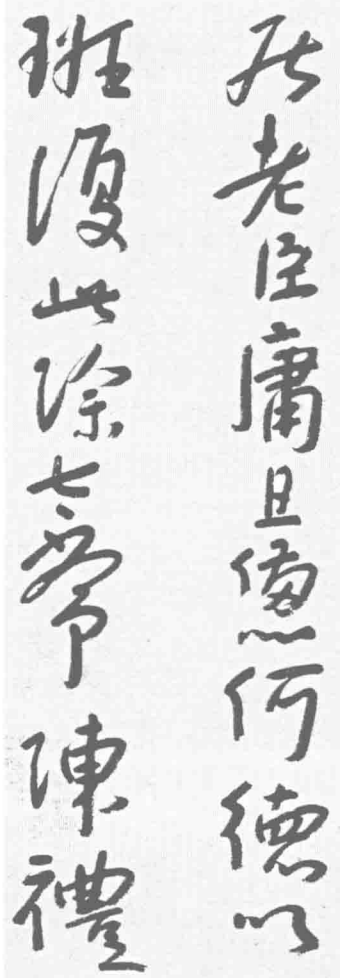 老臣庸且憊何德以
班復此除七陳禮